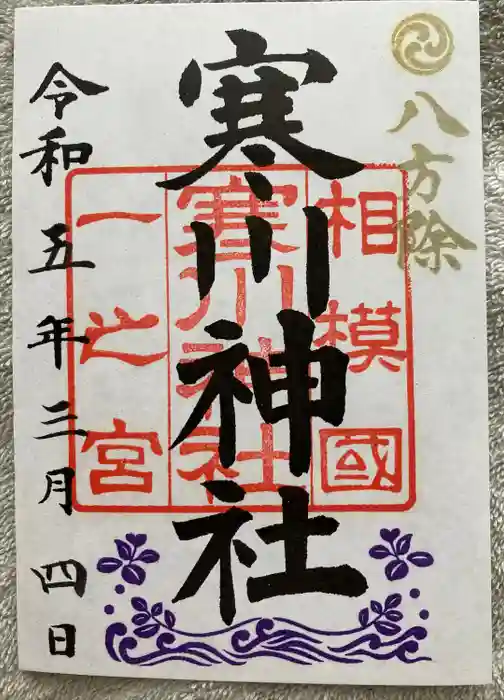 八方除
寒川神社
相模國
寒川神社
一之宮
令和五年三月四日